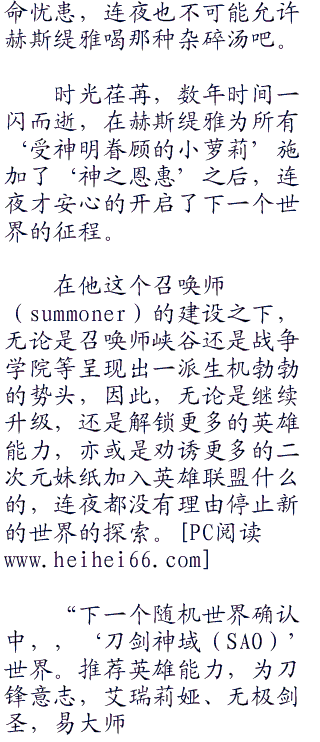 命忧患，连夜也不可能允许
赫斯缇雅喝那种杂碎汤吧。
时光荏苒，数年时间一
闪而逝，在赫斯缇雅为所有
‘受神明眷顾的小萝莉’施
加了‘神之恩惠’之后，连
夜才安心的开启了下一个世
界的征程。
在他这个召唤师
（summoner）的建设之下，
无论是召唤师峡谷还是战争
学院等呈现出一派生机勃勃
的势头，因此，无论是继续
升级，还是解锁更多的英雄
能力，亦或是劝诱更多的二
次元妹纸加入英雄联盟什么
的，连夜都没有理由停止新
的世界的探索。[PC阅读
www.heihei66.com]
“下一个随机世界确认
中，，‘刀剑神域（SAO）’
世界。推荐英雄能力，为刀
锋意志，艾瑞莉娅、无极剑
圣，易大师